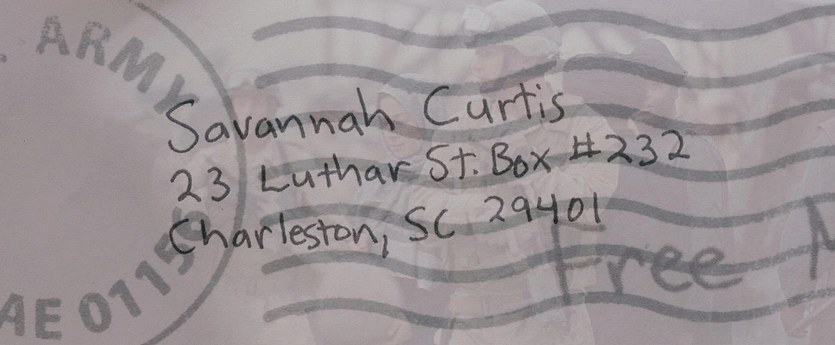 . ARMY
Savannah Curtis
23 Luthar St. Box #232
Charleston, SC 29401
Free
AE 0115